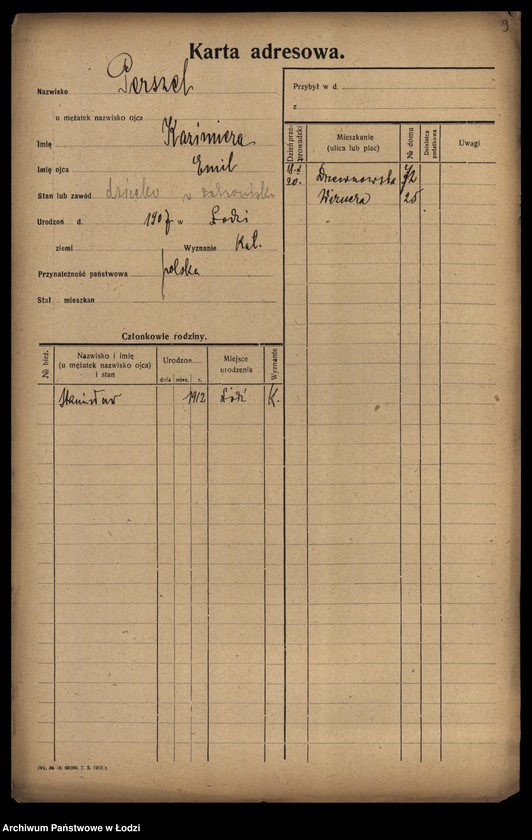 9
Karta adresowa.
Nazwisko Perszel
u mężatek nazwisko ojca
Imię Kazimiera
Imię ojca Emil
Stan lub zawód dziecko
Urodzon d. 1907 w Łodzi
ziemi Wyznanie Kat.
Przynależność państwowa polska
Stał. mieszkan
Przybył w d.
z
Dzień przeprowadzki
Mieszkanie
(ulica lub plac)
№ domu
Dzielnica podatkowa
Uwagi
20. Drewnowska 72
Wiznera 25
Członkowie rodziny.
№ bież.
Nazwisko i imię
(u mężatek nazwisko ojca)
i stan
Urodzon
dnia mies. r.
Miejsce
urodzenia
Wyznanie
Stanisław 1912 Łódź K.
7. X. 1919 r.
Archiwum Państwowe w Łodzi